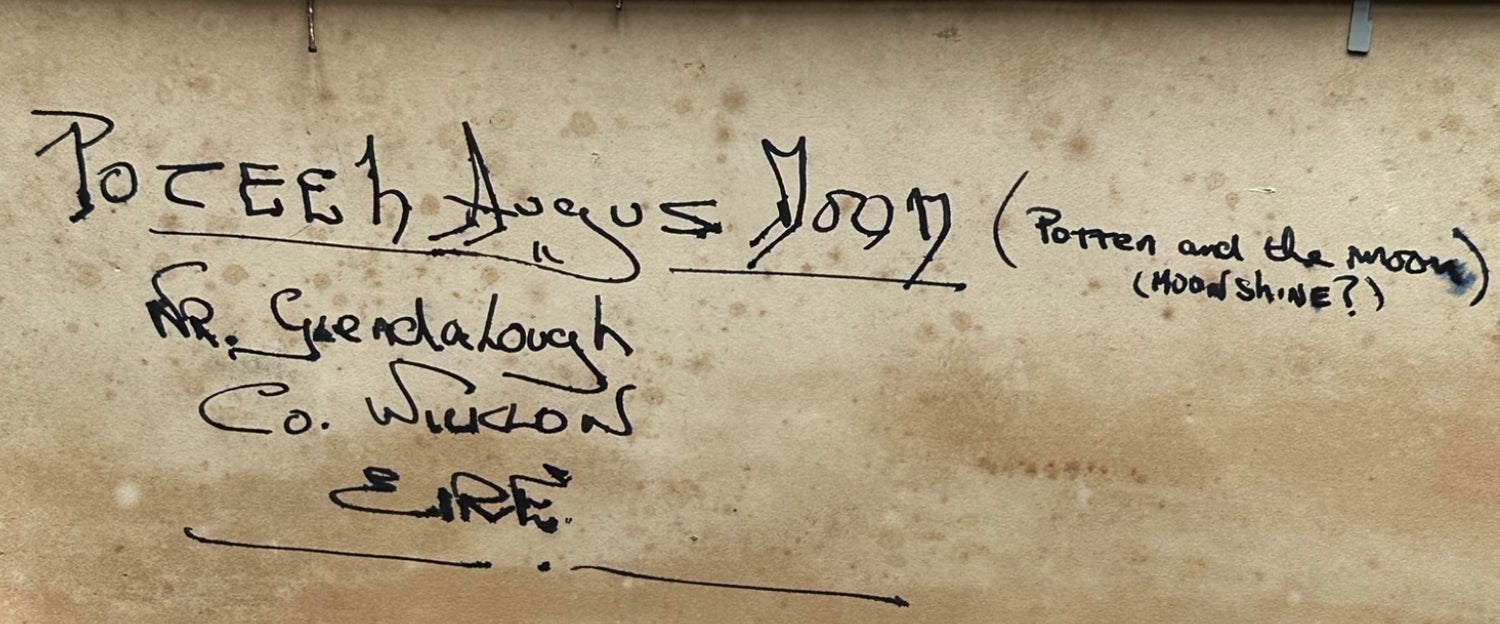 POTEEN Augus Moon (Potteen and the moon)
(MOONSHINE?)
NR. Glendalough
Co. WICKLOW
EIRE.